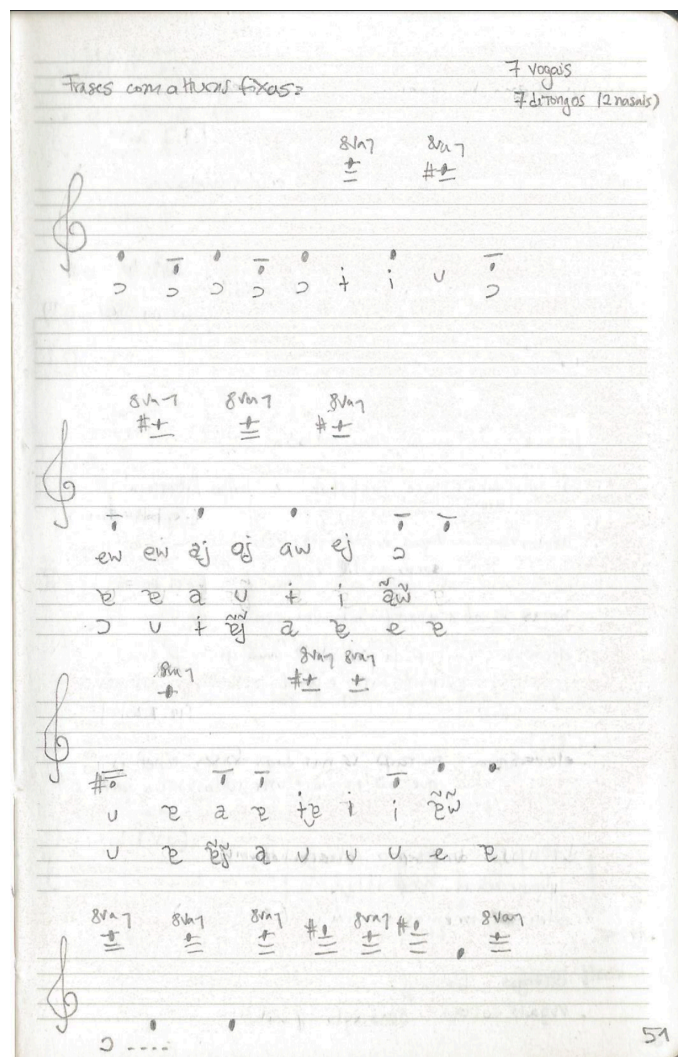 7 vogais
Frases com alturas fixas:
7 ditongos (2 nasais)
8va 8va
ɔ ɔ ɔ ɔ ɔ ɨ i ʋ ɔ
8va 8va 8va
ew ew aj oj aw ej ɔ
ɐ ɐ a ʋ ɨ i ãw̃
ɔ ʋ ɨ ɐ̃j̃ a ɐ e ɐ
8va 8va 8va
ʋ ɐ a ɐ i i ɐ̃w̃
ʋ ɐ ɐ̃j̃ a ʋ ʋ ʋ e ɐ
8va 8va 8va 8va 8va
ɔ ....
51